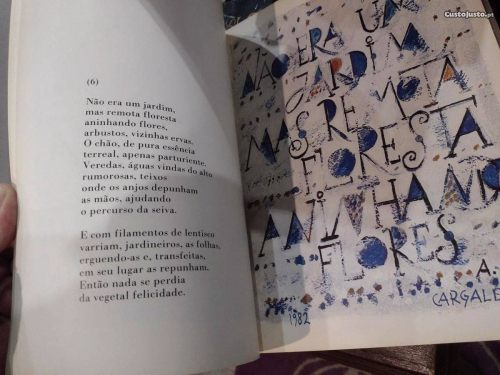 (6)
Não era um jardim,
mas remota floresta
aninhando flores,
arbustos, vizinhas ervas.
O chão, de pura essência
terreal, apenas parturiente.
Veredas, águas vindas do alto
rumorosas, teixos
onde os anjos depunham
as mãos, ajudando
o percurso da seiva.
E com filamentos de lentisco
varriam, jardineiros, as folhas,
erguendo-as e, transfeitas,
em seu lugar as repunham.
Então nada se perdia
da vegetal felicidade.
NÃO ERA UM
JARDIM,
MAS REMOTA
FLORESTA
ANINHAND
FLORES
A.
CARGALE
1982
CustoJusto.pt